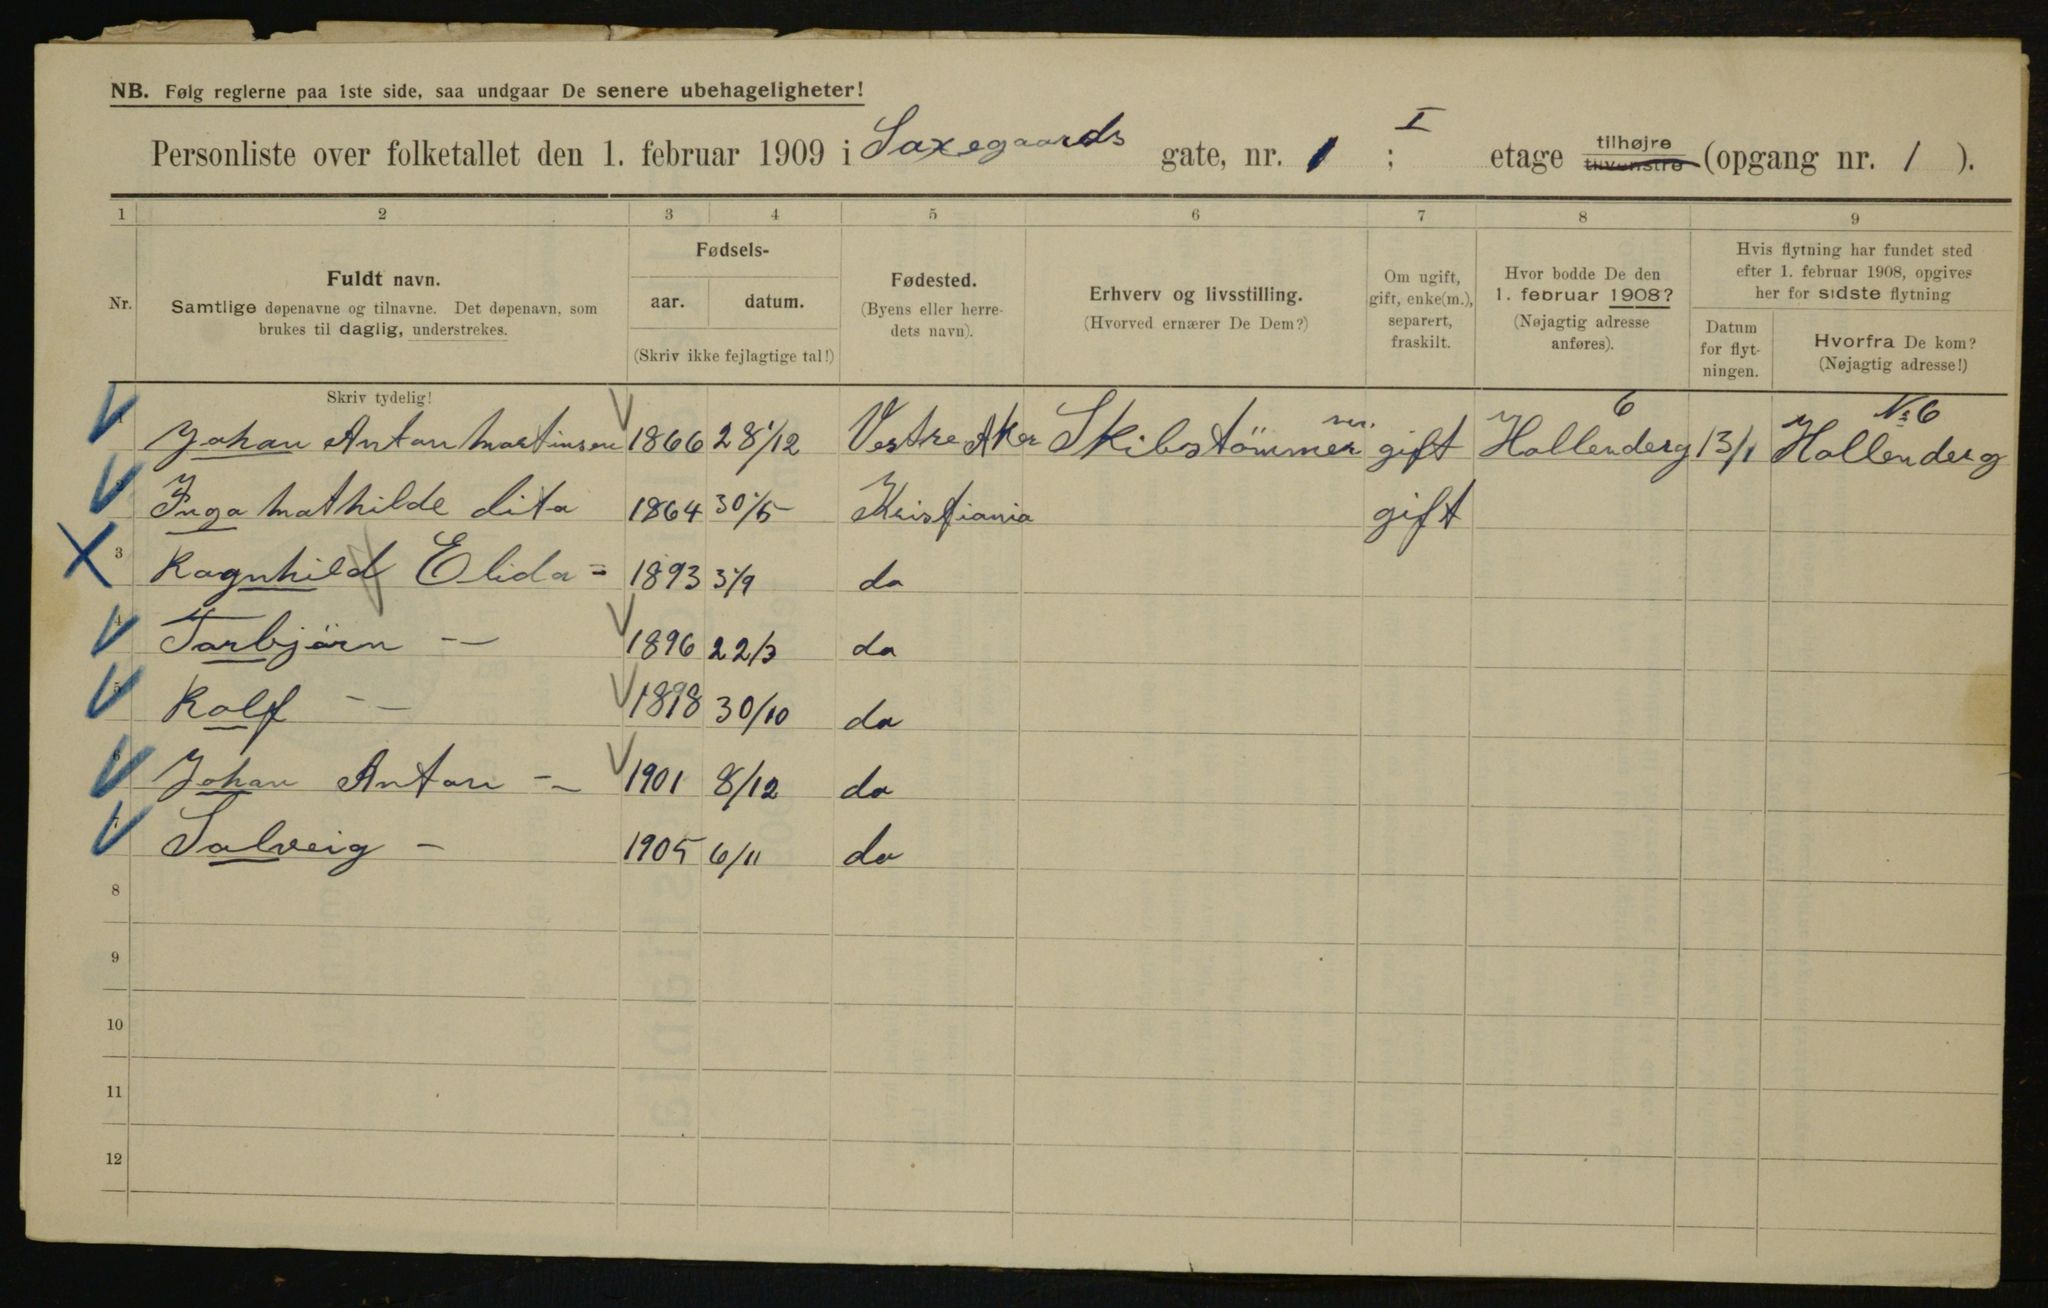 NB. Følg reglerne paa 1ste side, saa undgaar De senere ubehageligheter!
Personliste over folketallet den 1. februar 1909 i Saxegaards gate, nr. 1 ; I etage tilhøjre tilvenstre (opgang nr. 1 ).
1 2 3 4 5 6 7 8 9
Nr.
Fuldt navn.
Samtlige døpenavne og tilnavne. Det døpenavn, som
brukes til daglig, understrekes.
Fødsels-
aar. datum.
(Skriv ikke fejlagtige tal!)
Fødested.
(Byens eller herre-
dets navn).
Erhverv og livsstilling.
(Hvorved ernærer De Dem?)
Om ugift,
gift, enke(m.),
separert,
fraskilt.
Hvor bodde De den
1. februar 1908?
(Nøjagtig adresse
anføres).
Hvis flytning har fundet sted
efter 1. februar 1908, opgives
her for sidste flytning
Datum
for flyt-
ningen.
Hvorfra De kom?
(Nøjagtig adresse!)
Skriv tydelig!
Johan Anton Martinsen 1866 28/12 Vestre Aker Skibstömmer gift Hollenderg 6 13/1 Hollenderg No 6
Inga Mathilde dito 1864 30/5 Kristiania gift
3 Ragnhild Elida - 1893 3/9 do
4 Torbjörn - 1896 22/3 do
5 Rolf - - 1898 30/10 do
6 Johan Anton - 1901 8/12 do
7 Solveig - 1905 6/11 do
8
9
10
11
12